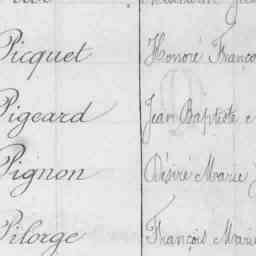 Picquet Honoré Franço
Pigeard Jean Baptiste
Pignon Désiré Marie
Pilorge François Marie